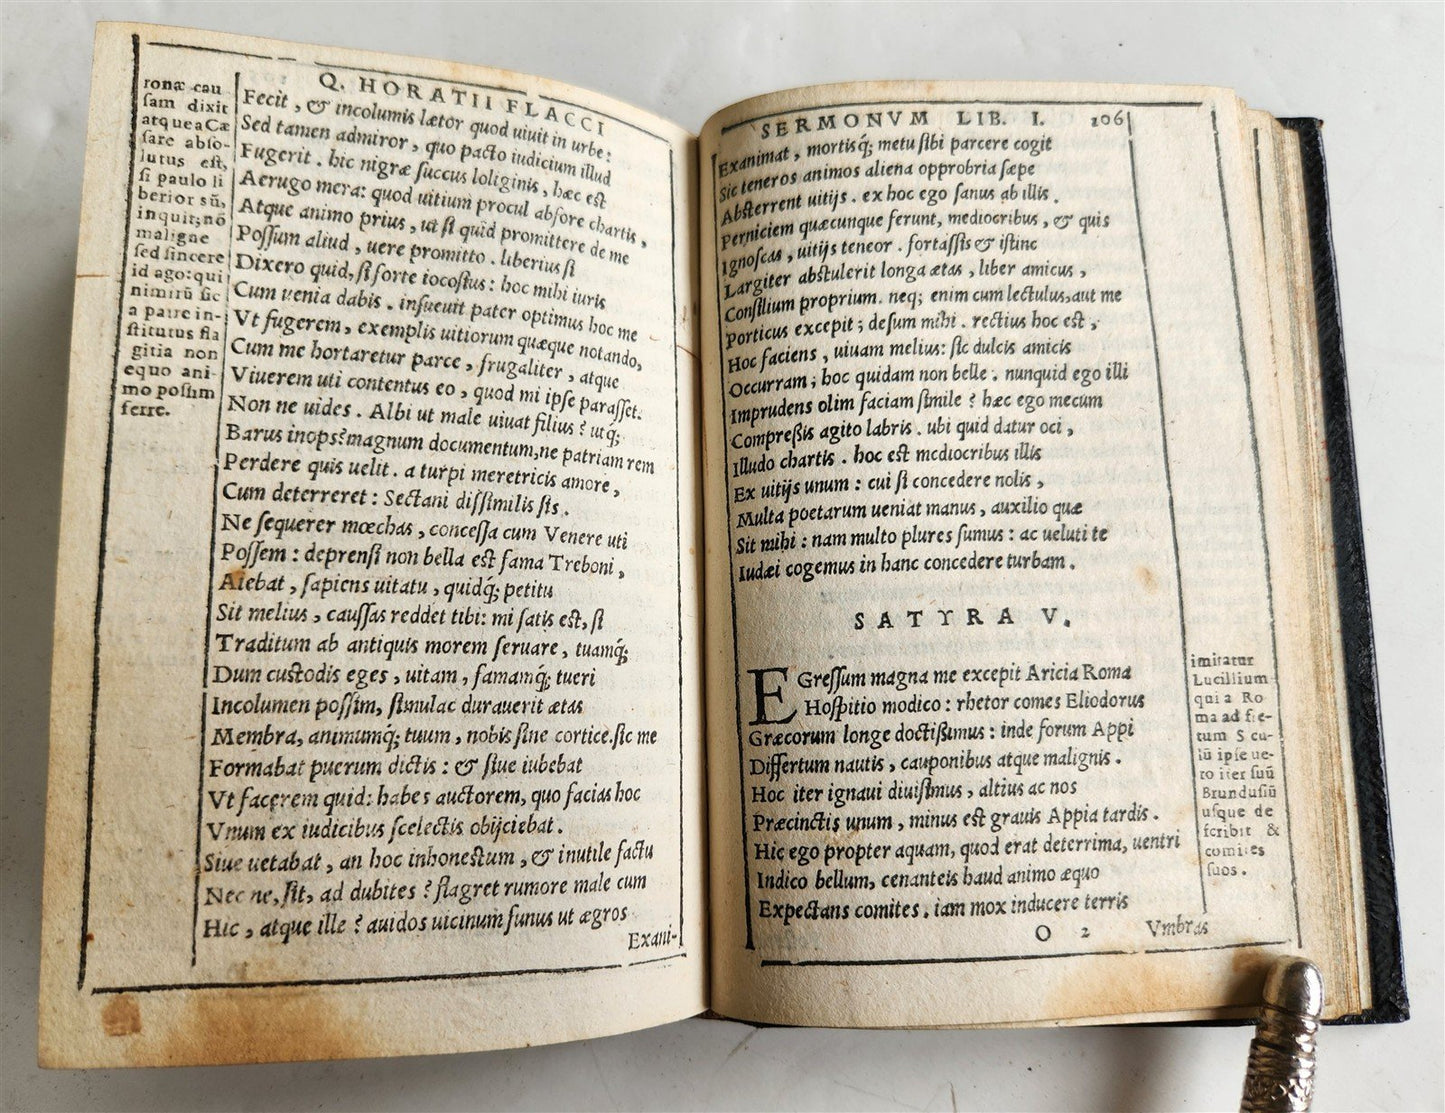 Q. HORATII FLACCI
ronæ cau
ſam dixit
atque a Cæ
ſare abſo-
lutus eſt,
ſi paulo li
berior sū,
inquit; nō
maligne
ſed ſincere
id ago: qui
nimirū ſic
a patre in-
ſtitutus fla
gitia non
equo ani-
mo poſſum
ferre.
Fecit, & incolumis lætor quod uiuit in urbe:
Sed tamen admiror, quo pacto iudicium illud
Fugerit. hic nigræ ſuccus loliginis, hæc eſt
Aerugo mera: quod uitium procul abfore chartis,
Atque animo prius, ut ſi quid promittere de me
Poſſum aliud, uere promitto. liberius ſi
Dixero quid, ſi forte iocoſius: hoc mihi iuris
Cum uenia dabis. inſueuit pater optimus hoc me
Vt fugerem, exemplis uitiorum quæque notando,
Cum me hortaretur parce, frugaliter, atque
Viuerem uti contentus eo, quod mi ipſe paraſſet.
Non ne uides. Albi ut male uiuat filius? utq́;
Barus inops? magnum documentum, ne patriam rem
Perdere quis uelit. a turpi meretricis amore,
Cum deterreret: Sectani diſſimilis ſis.
Ne ſequerer mœchas, conceſſa cum Venere uti
Poſſem: deprenſi non bella eſt fama Treboni,
Aiebat, ſapiens uitatu, quidq́; petitu
Sit melius, cauſſas reddet tibi: mi ſatis eſt, ſi
Traditum ab antiquis morem ſeruare, tuamq́;
Dum cuſtodis eges, uitam, famamq́; tueri
Incolumen poſſim, ſimulac durauerit ætas
Membra, animumq́; tuum, nobis ſine cortice. ſic me
Formabat puerum dictis: & ſiue iubebat
Vt facerem quid: habes auctorem, quo facias hoc
Vnum ex iudicibus ſcelectis obijciebat.
Siue uetabat, an hoc inhoneſtum, & inutile factu
Nec ne, ſit, ad dubites? flagret rumore male cum
Hic, atque ille? auidos uicinum funus ut ægros
Exani-
SERMONVM LIB. I. 106
Exanimat, mortisq́; metu ſibi parcere cogit
Sic teneros animos aliena opprobria ſæpe
Abſterrent uitijs. ex hoc ego ſanus ab illis.
Perniciem quæcunque ferunt, mediocribus, & quis
Ignoſcas, uitijs teneor. fortaſſis & iſtinc
Largiter abſtulerit longa ætas, liber amicus,
Conſilium proprium. neq; enim cum lectulus, aut me
Porticus excepit; deſum mihi. rectius hoc eſt,
Hoc faciens, uiuam melius: ſic dulcis amicis
Occurram; hoc quidam non belle. nunquid ego illi
Imprudens olim faciam ſimile? hæc ego mecum
Compreßis agito labris. ubi quid datur oci,
Illudo chartis. hoc eſt mediocribus illis
Ex uitijs unum: cui ſi concedere nolis,
Multa poetarum ueniat manus, auxilio quæ
Sit mihi: nam multo plures ſumus: ac ueluti te
Iudæi cogemus in hanc concedere turbam.
SATYRA V.
EGreſſum magna me excepit Aricia Roma
Hoſpitio modico: rhetor comes Eliodorus
Græcorum longe doctißimus: inde forum Appi
Differtum nautis, cauponibus atque malignis.
Hoc iter ignaui diuiſimus, altius ac nos
Præcinctis unum, minus eſt grauis Appia tardis.
Hic ego propter aquam, quod erat deterrima, uentri
Indico bellum, cenanteis haud animo æquo
Expectans comites. iam mox inducere terris
imitatur
Lucillium
qui a Ro
ma ad fre-
tum Scu-
lū ipſe ue-
ro iter ſuū
Brunduſiū
uſque de
ſcribit &
comites
ſuos.
O 2 Vmbras